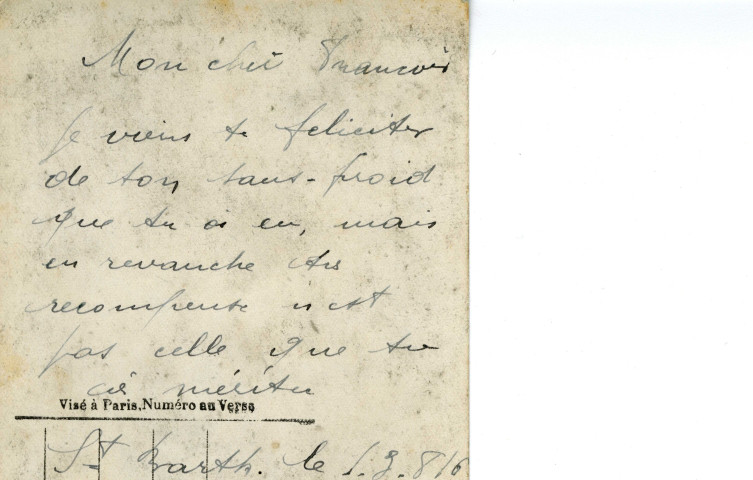 Mon cher François
je viens te feliciter
de ton sans-froid
que tu a eu, mais
en revanche
recompense n'est
pas celle que tu
as méritée
Visé à Paris, Numéro au Verso
St Barth. le